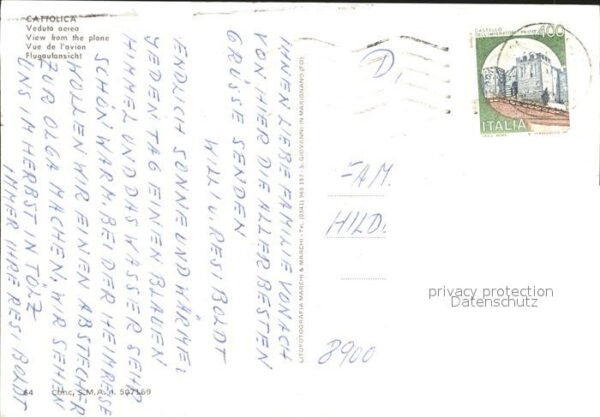 CATTOLICA
Veduta aerea
View from the plane
Vue de l'avion
Flugaufansicht
IHNEN LIEBE FAMILIE VONACH
VON HIER DIE ALLER BESTEN
GRÜSSE SENDEN
WILLI U. RESI BOLDT
ENDLICH SONNE UND WÄRME,
JEDEN TAG EINEN BLAUEN
HIMMEL UND DAS WASSER SEHR
SCHÖN WARM, BEI DER HEIMREISE
WOLLEN WIR EINEN ABSTECHER
ZUR OLGA MACHEN, WIR SEHEN
UNS IM HERBST IN TÖLZ
IMMER IHRE RESI BOLDT
LITOFOTOGRAFIA MARCHI & MARCHI - Tel. (0541) 945 157 - S. GIOVANNI IN MARIGNANO (FO)
64
Conc. S.M.A. 507169
CASTELLO
400
ITALIA
D,
FAM.
HILD.
8900
privacy protection
Datenschutz